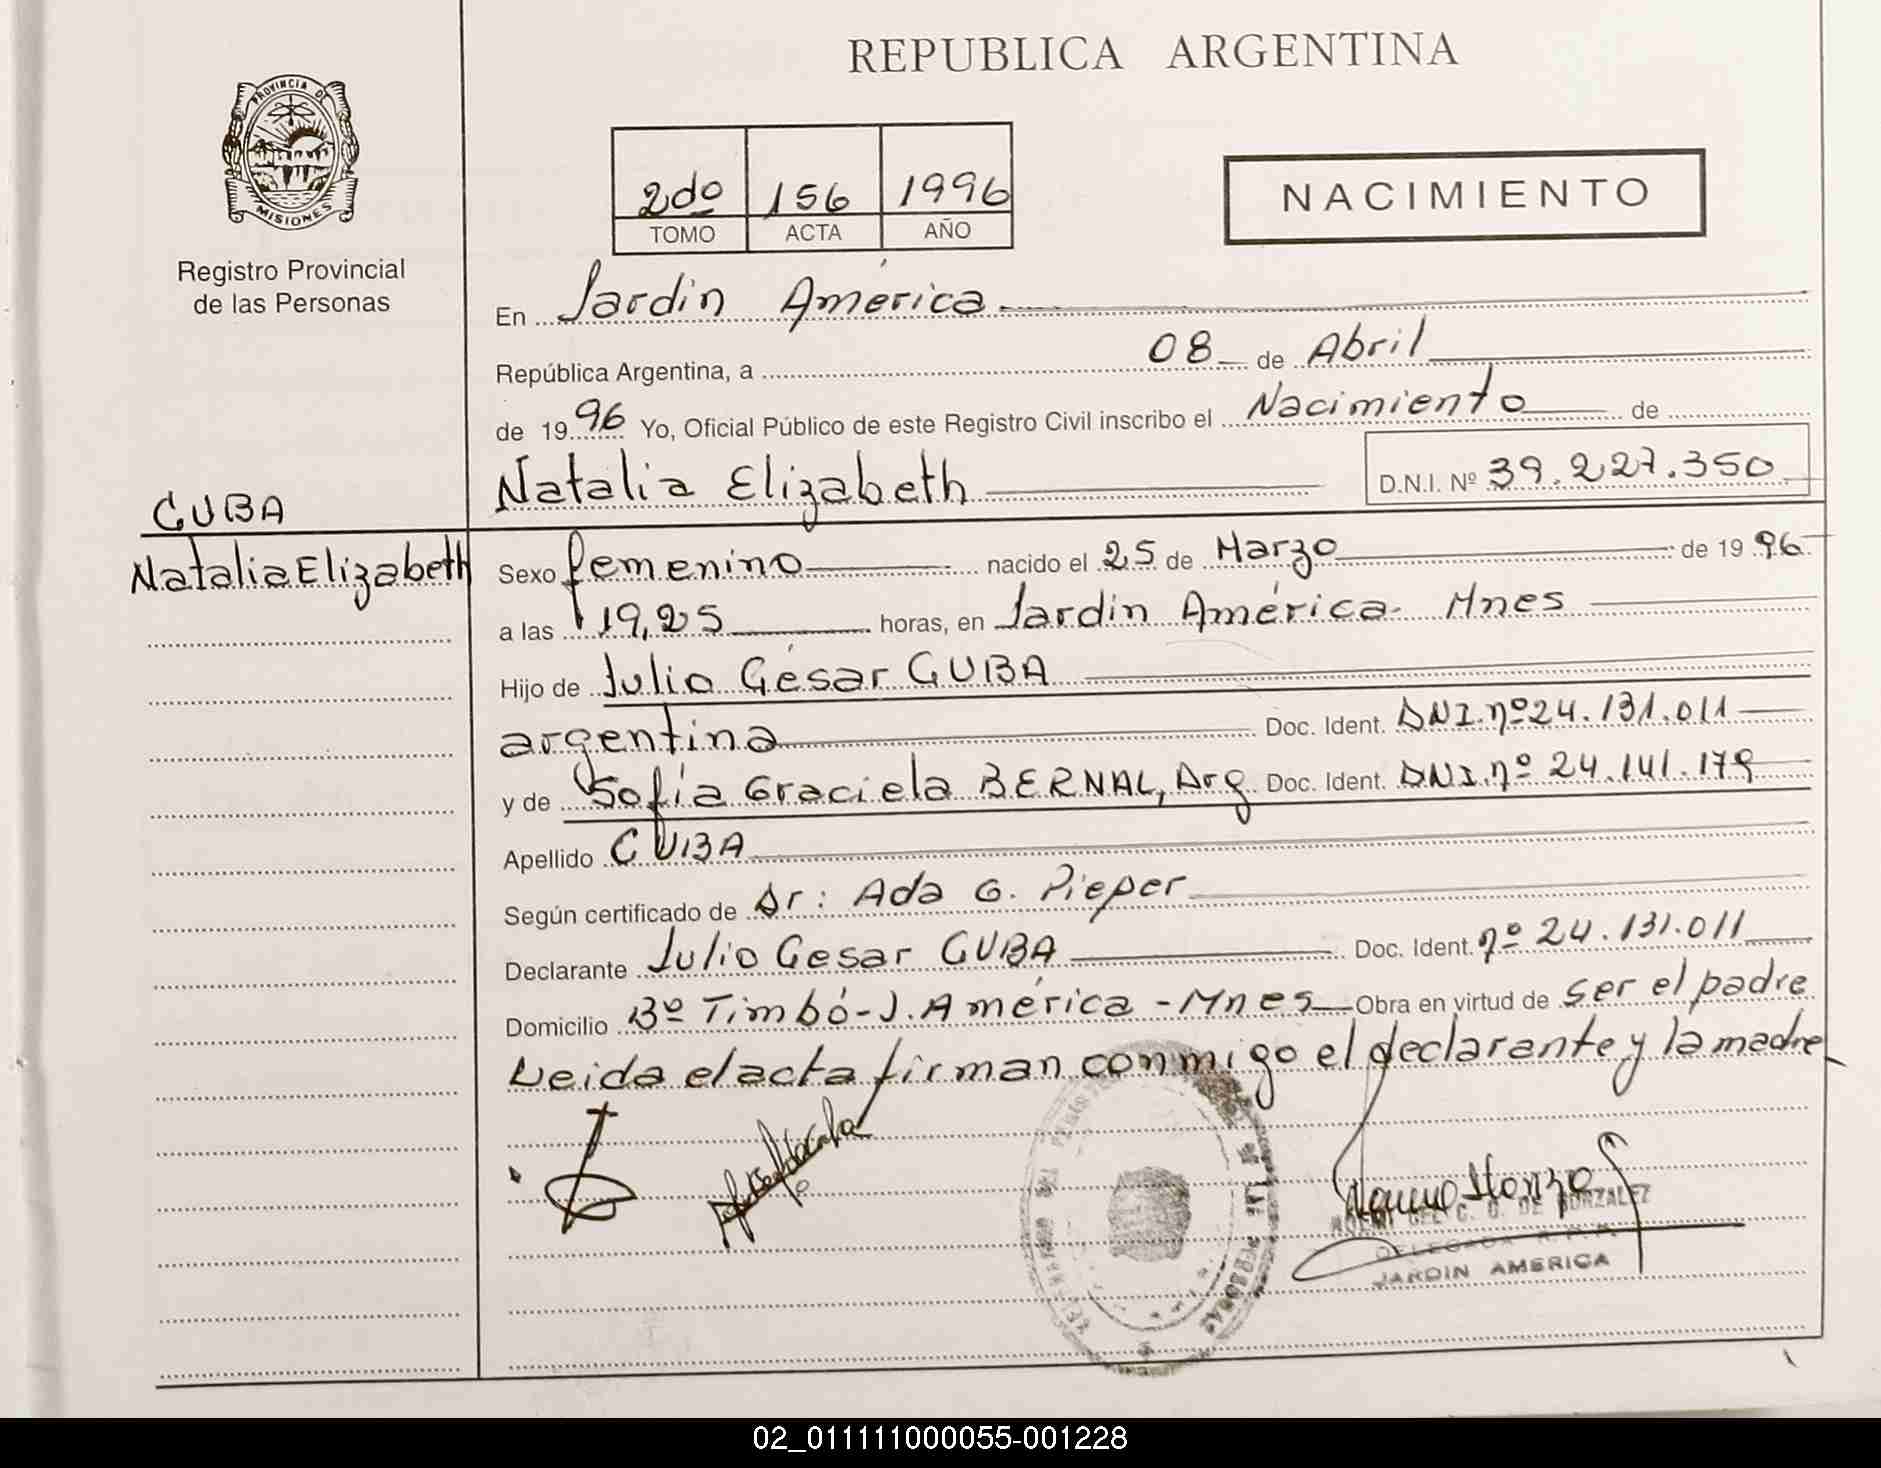 REPUBLICA ARGENTINA
PROVINCIA DE
MISIONES
Registro Provincial
de las Personas
2do 156 1996
TOMO ACTA AÑO
NACIMIENTO
En Jardin América
República Argentina, a 08 de Abril
de 1996 Yo, Oficial Público de este Registro Civil inscribo el Nacimiento de
Natalia Elizabeth D.N.I. Nº 39.227.350
CUBA
Natalia Elizabeth
Sexo femenino nacido el 25 de Marzo de 1996
a las 19,25 horas, en Jardin América- Mnes
Hijo de Julio César CUBA
argentina Doc. Ident. DNI.nº24.131.011
y de Sofía Graciela BERNAL, Arg Doc. Ident. DNI.nº 24.141.179
Apellido CUBA
Según certificado de Dr: Ada G. Pieper
Declarante Julio Cesar CUBA Doc. Ident. nº 24.131.011
Domicilio Bº Timbó-J.América -Mnes Obra en virtud de ser el padre
Leida el acta firman conmigo el declarante y la madre
DE GONZALEZ
DELEGADA R.P.P.
JARDIN AMERICA
02_011111000055-001228